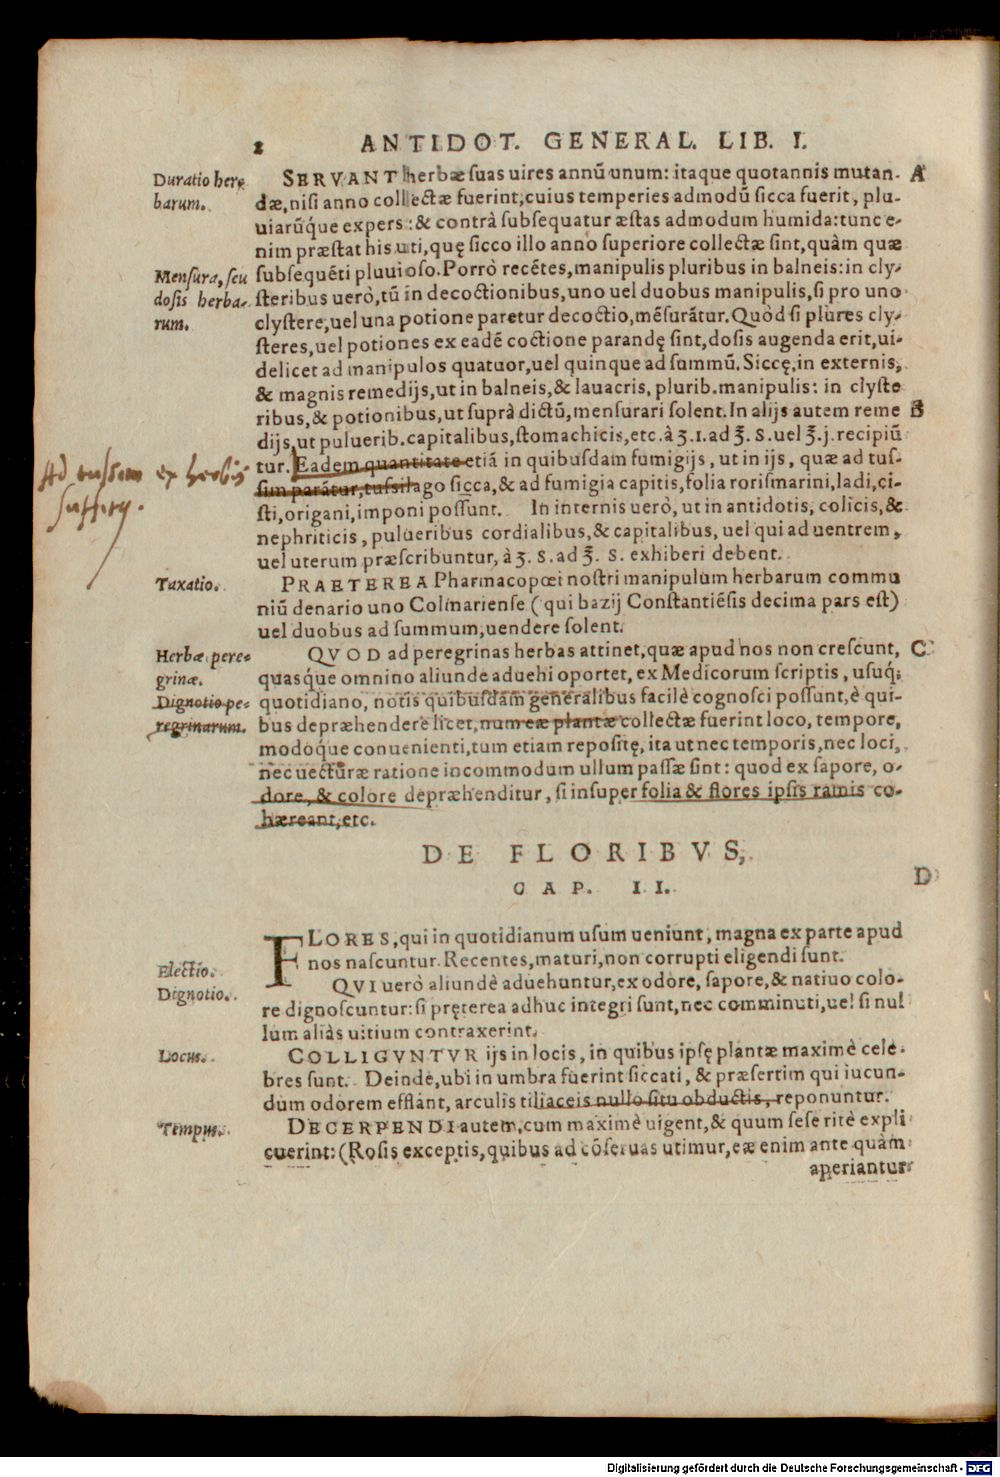 2 ANTIDOT. GENERAL. LIB. I.
Duratio herbarum.
SERVANT herbæ suas uires annũ unum: itaque quotannis mutan- A
dæ, nisi anno collectæ fuerint, cuius temperies admodũ sicca fuerit, plu-
uiarũq́ue expers: & contrà subsequatur æstas admodum humida: tunc e-
nim præstat his uti, quę sicco illo anno superiore collectæ sint, quàm quæ
Mensura, seu
dosis herba-
rum.
subsequẽti pluuioso. Porrò recẽtes, manipulis pluribus in balneis: in cly-
steribus uerò, tũ in decoctionibus, uno uel duobus manipulis, si pro uno
clystere, uel una potione paretur decoctio, mẽsurãtur. Quòd si plures cly-
steres, uel potiones ex eadẽ coctione parandę sint, dosis augenda erit, ui-
delicet ad manipulos quatuor, uel quinque ad summũ. Siccę, in externis,
& magnis remedijs, ut in balneis, & lauacris, plurib. manipulis: in clyste
ribus, & potionibus, ut suprà dictũ, mensurari solent. In alijs autem reme B
dijs, ut puluerib. capitalibus, stomachicis, etc. à ʒ. 1. ad ℥. S. uel ℥. j. recipiũ
Ad tussim ex herbis
suffitų.
tur. Eadem quantitate etiã in quibusdam fumigijs, ut in ijs, quæ ad tus-
sim parãtur, tussilago sicca, & ad fumigia capitis, folia rorismarini, ladi, ci-
sti, origani, imponi possunt. In internis uerò, ut in antidotis, colicis, &
nephriticis, pulueribus cordialibus, & capitalibus, uel qui ad uentrem,
uel uterum præscribuntur, à ʒ. S. ad ℥. S. exhiberi debent.
Taxatio.
PRAETEREA Pharmacopœi nostri manipulum herbarum commu
niũ denario uno Colmariense (qui bazij Constantiẽsis decima pars est)
uel duobus ad summum, uendere solent.
Herbæ pere-
grinæ.
Dignotio pe-
regrinarum.
QVOD ad peregrinas herbas attinet, quæ apud nos non crescunt, C
quasq́ue omnino aliunde aduehi oportet, ex Medicorum scriptis, usuq́;
quotidiano, notis quibusdam generalibus facilè cognosci possunt, è qui-
bus depræhendere licet, num eæ plantæ collectæ fuerint loco, tempore,
modoq́ue conuenienti, tum etiam repositę, ita ut nec temporis, nec loci,
nec uecturæ ratione incommodum ullum passæ sint: quod ex sapore, o-
dore, & colore depræhenditur, si insuper folia & flores ipsis ramis co-
hæreant, etc.
DE FLORIBVS,
CAP. II.
D
FLORES, qui in quotidianum usum ueniunt, magna ex parte apud
Electio.
nos nascuntur. Recentes, maturi, non corrupti eligendi sunt.
Dignotio.
QVI uerò aliundè aduehuntur, ex odore, sapore, & natiuo colo-
re dignoscuntur: si pręterea adhuc integri sunt, nec comminuti, uel si nul
lum aliàs uitium contraxerint.
Locus.
COLLIGVNTVR ijs in locis, in quibus ipsę plantæ maximè cele-
bres sunt. Deinde, ubi in umbra fuerint siccati, & præsertim qui iucun-
dum odorem efflant, arculis tiliaceis nullo situ obductis, reponuntur.
Tempus.
DECERPENDI autem, cum maximè uigent, & quum sese ritè expli
cuerint: (Rosis exceptis, quibus ad cõseruas utimur, eæ enim ante quàm
aperiantur
Digitalisierung gefördert durch die Deutsche Forschungsgemeinschaft - DFG